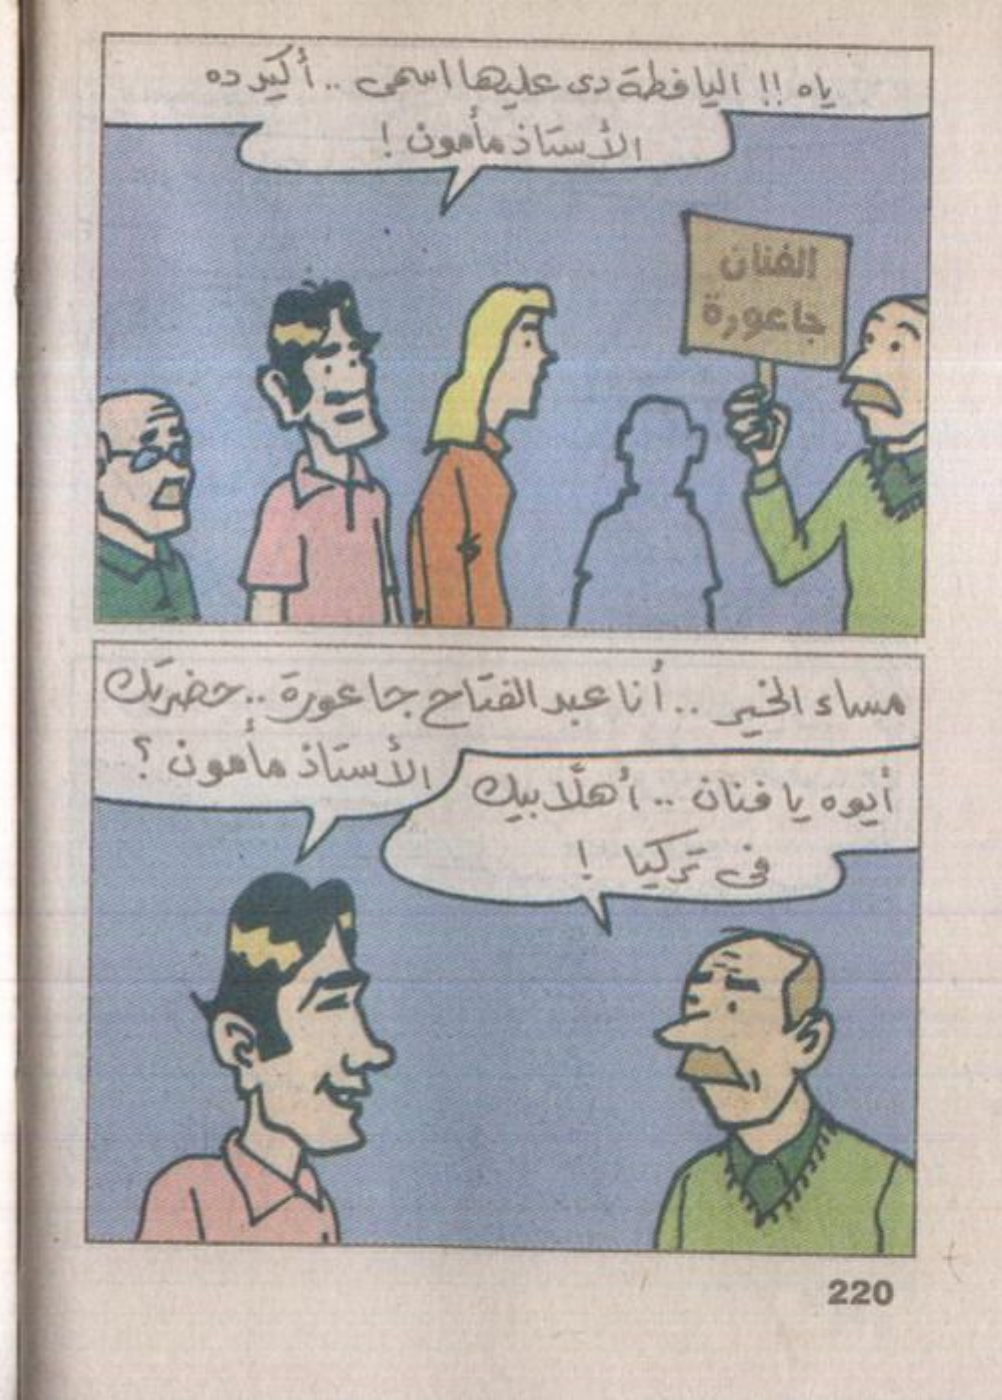 ياه !! اليافطة دى عليها اسمى .. أكيد ده
الأستاذ مأمون !
الفنان
جاعورة
مساء الخير .. أنا عبد الفتاح جاعورة .. حضرتك
الأستاذ مأمون ؟
أيوه يا فنان .. أهلًا بيك
فى تركيا !
220